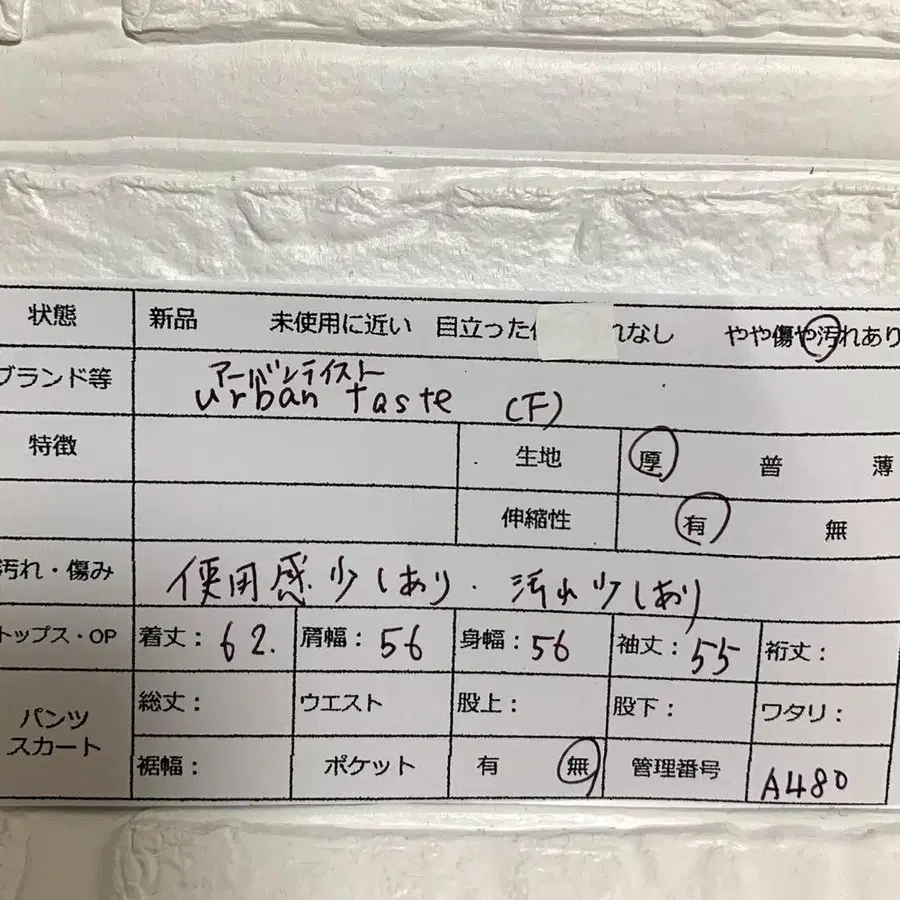 状態 新品 未使用に近い 目立った れなし やや傷や汚れあり
ブランド等 アーバンテイスト
urban taste (F)
特徴 生地 厚 普 薄
伸縮性 有 無
汚れ・傷み 使用感少しあり. 汚れ少しあり
トップス・OP 着丈: 62. 肩幅: 56 身幅: 56 袖丈: 55 裄丈:
パンツ
スカート
総丈: ウエスト 股上: 股下: ワタリ:
裾幅: ポケット 有 無 管理番号 A480